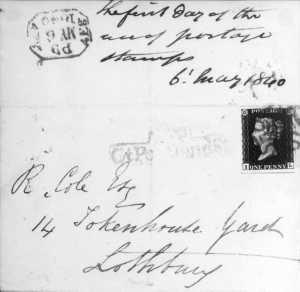 The first day of the
use of postage
stamps
6th May 1840
PD
MY 6
1840
POSTAGE
ONE PENNY
R. Cole Esq
14 Tokenhouse Yard
Lothbury